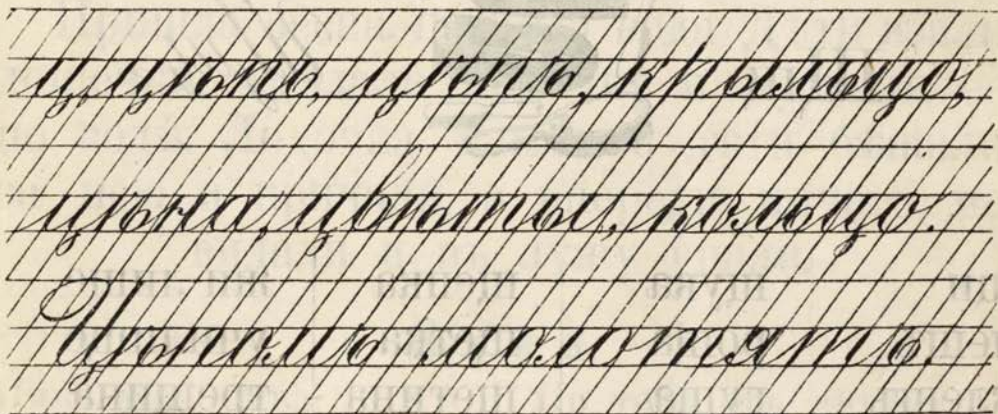 ц, цѣпь, цѣпъ, крыльцо,
цѣна, цвѣты, кольцо.
Цѣпомъ молотятъ.